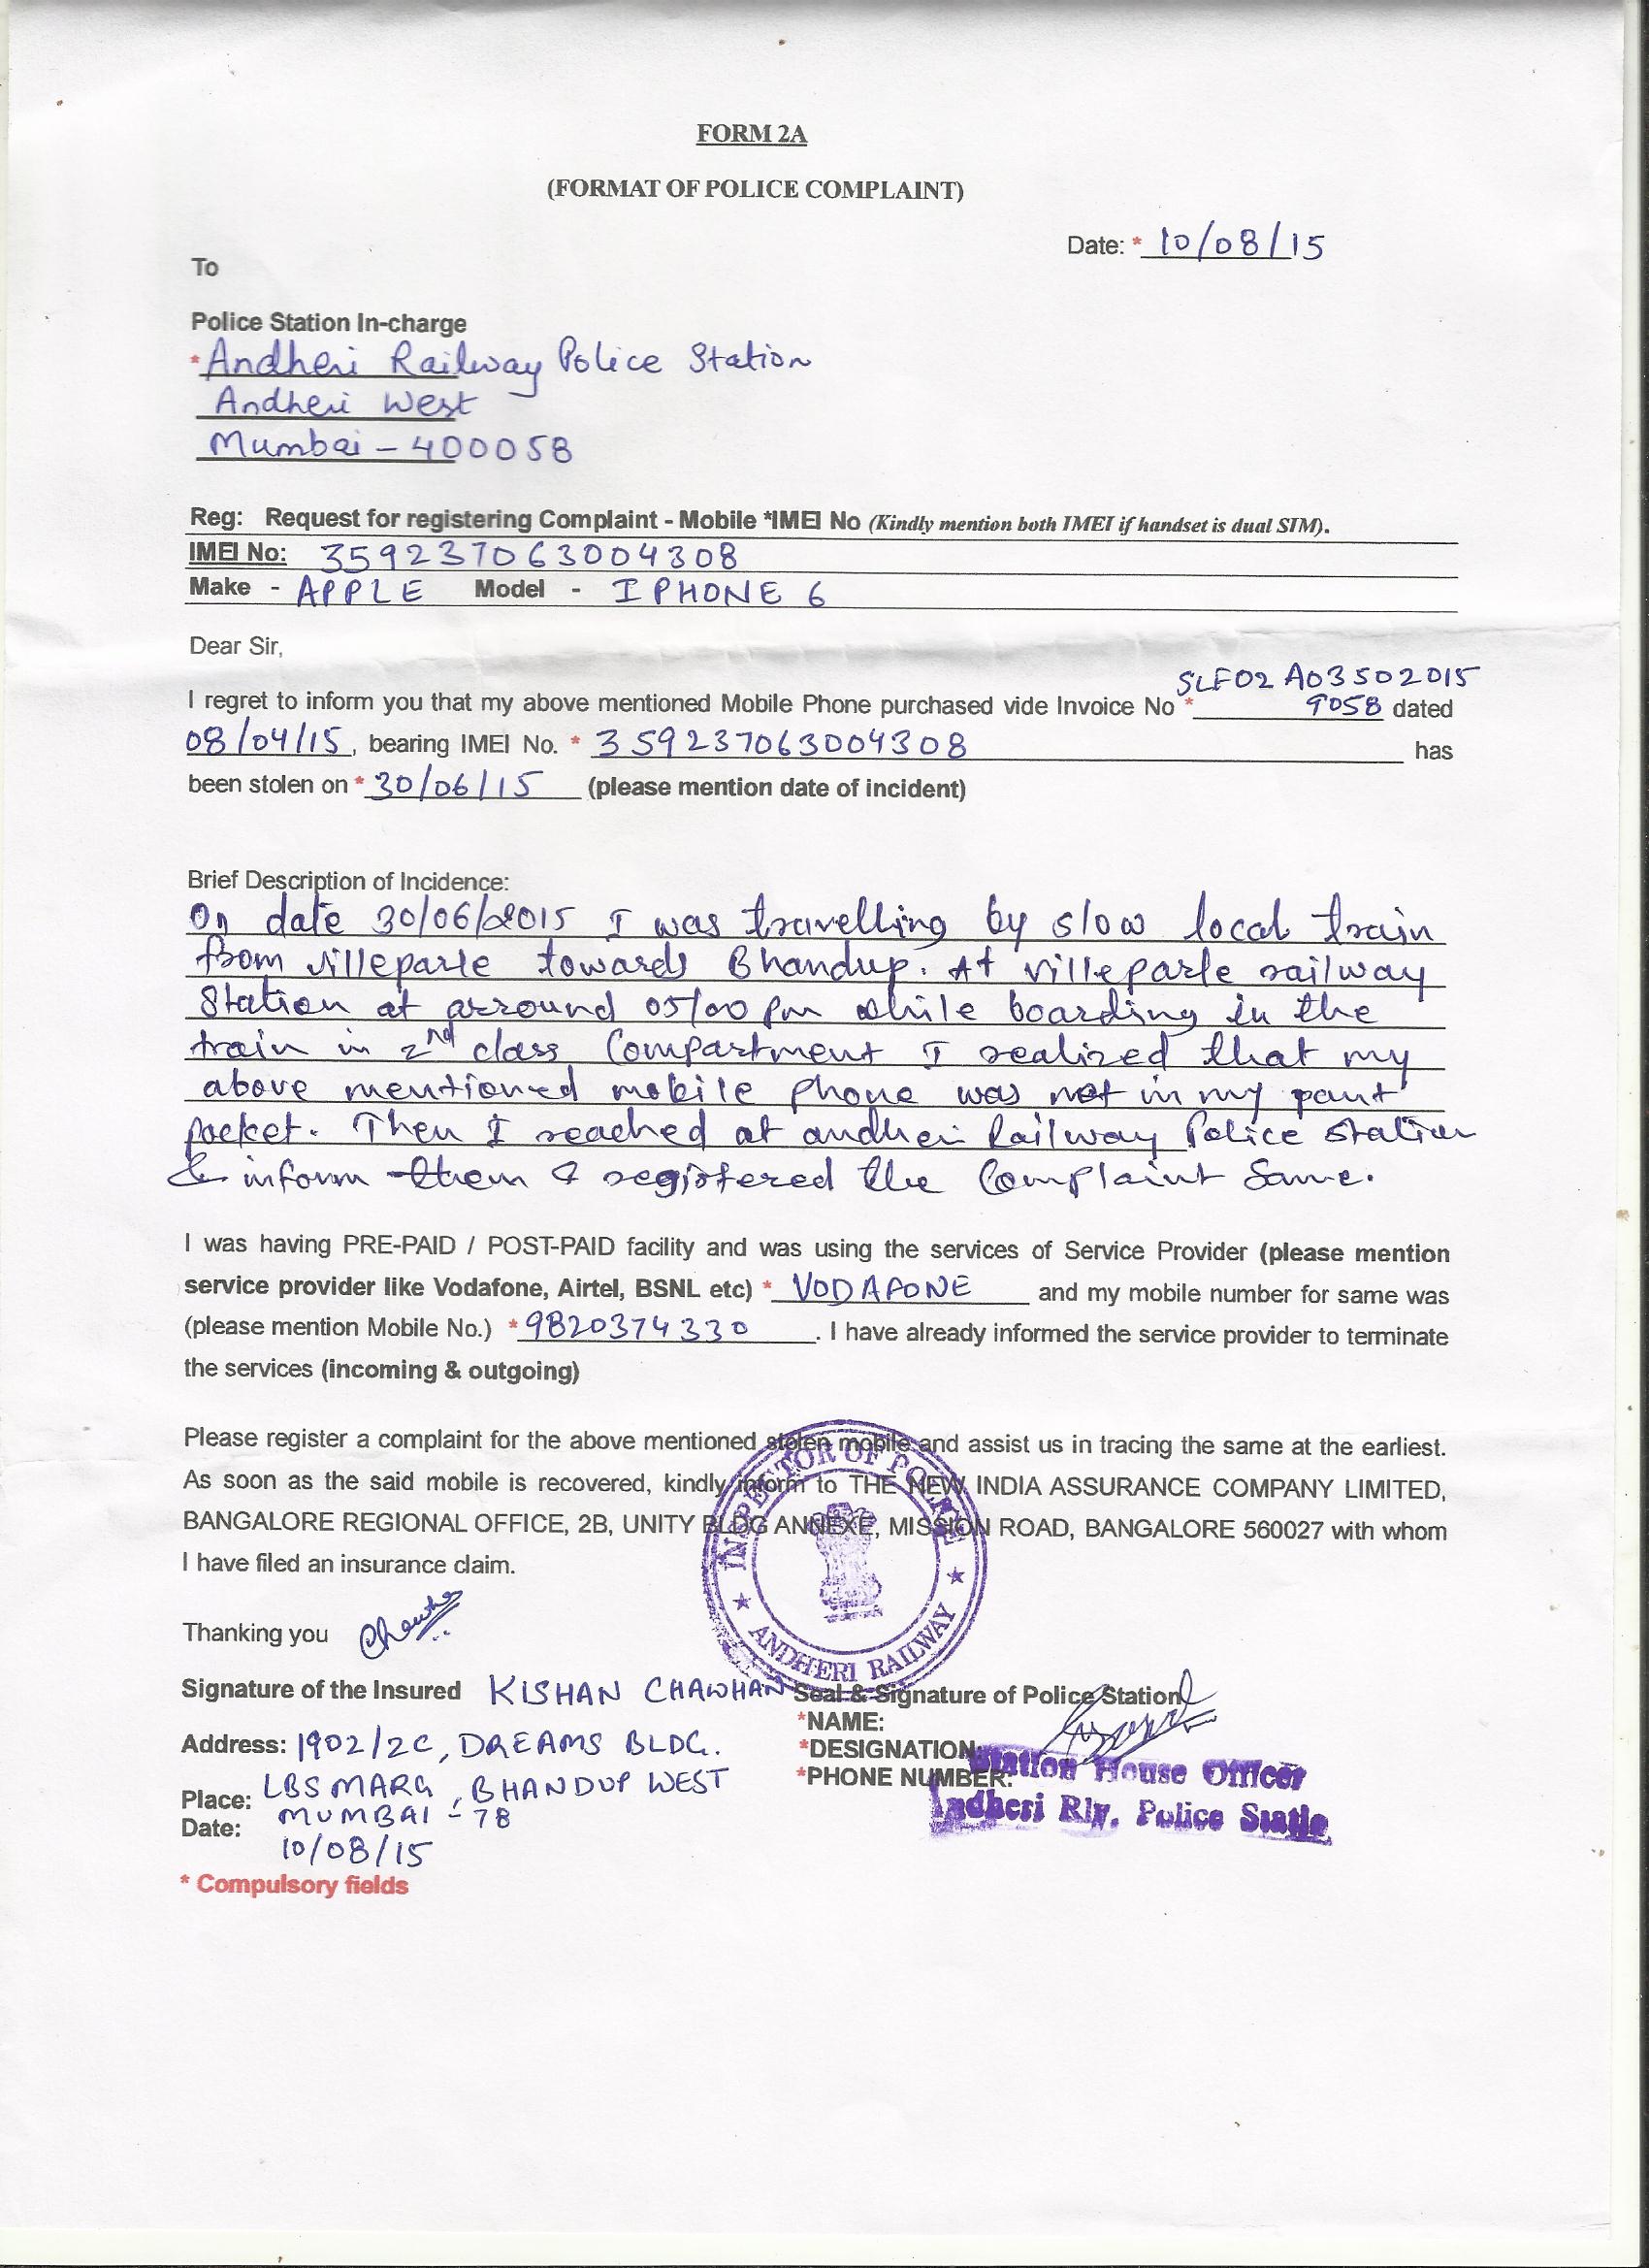 FORM 2A
(FORMAT OF POLICE COMPLAINT)
Date: * 10/08/15
To
Police Station In-charge
*Andheri Railway Police Station
Andheri West
Mumbai - 400058
Reg: Request for registering Complaint - Mobile *IMEI No (Kindly mention both IMEI if handset is dual SIM).
IMEI No: 359237063004308
Make - APPLE Model - I PHONE 6
Dear Sir,
SLF02 A03502015
I regret to inform you that my above mentioned Mobile Phone purchased vide Invoice No * 9058 dated
08/04/15, bearing IMEI No. * 359237063004308 has
been stolen on * 30/06/15 (please mention date of incident)
Brief Description of Incidence:
On date 30/06/2015 I was travelling by slow local train
from villeparle towards Bhandup. At villeparle railway
Station at arround 05/00 pm while boarding in the
train in 2nd class Compartment I realized that my
above mentioned mobile phone was not in my pant
pocket. Then I reached at andheri Railway Police station
& inform them & registered the Complaint Same.
I was having PRE-PAID / POST-PAID facility and was using the services of Service Provider (please mention
service provider like Vodafone, Airtel, BSNL etc) * VODAFONE and my mobile number for same was
(please mention Mobile No.) *9820374330. I have already informed the service provider to terminate
the services (incoming & outgoing)
Please register a complaint for the above mentioned stolen mobile and assist us in tracing the same at the earliest.
As soon as the said mobile is recovered, kindly inform to THE NEW INDIA ASSURANCE COMPANY LIMITED,
BANGALORE REGIONAL OFFICE, 2B, UNITY BLDG ANNEXE, MISSION ROAD, BANGALORE 560027 with whom
I have filed an insurance claim.
INSPECTOR OF POLICE
ANDHERI RAILWAY
Thanking you
Signature of the Insured KISHAN CHAWHAN
Seal & Signature of Police Station
*NAME:
*DESIGNATION
*PHONE NUMBER:
Station House Officer
Andheri Rly. Police Statio
Address: 1902/2C, DREAMS BLDG.
LBS MARG, BHANDUP WEST
Place: MUMBAI - 78
Date: 10/08/15
* Compulsory fields